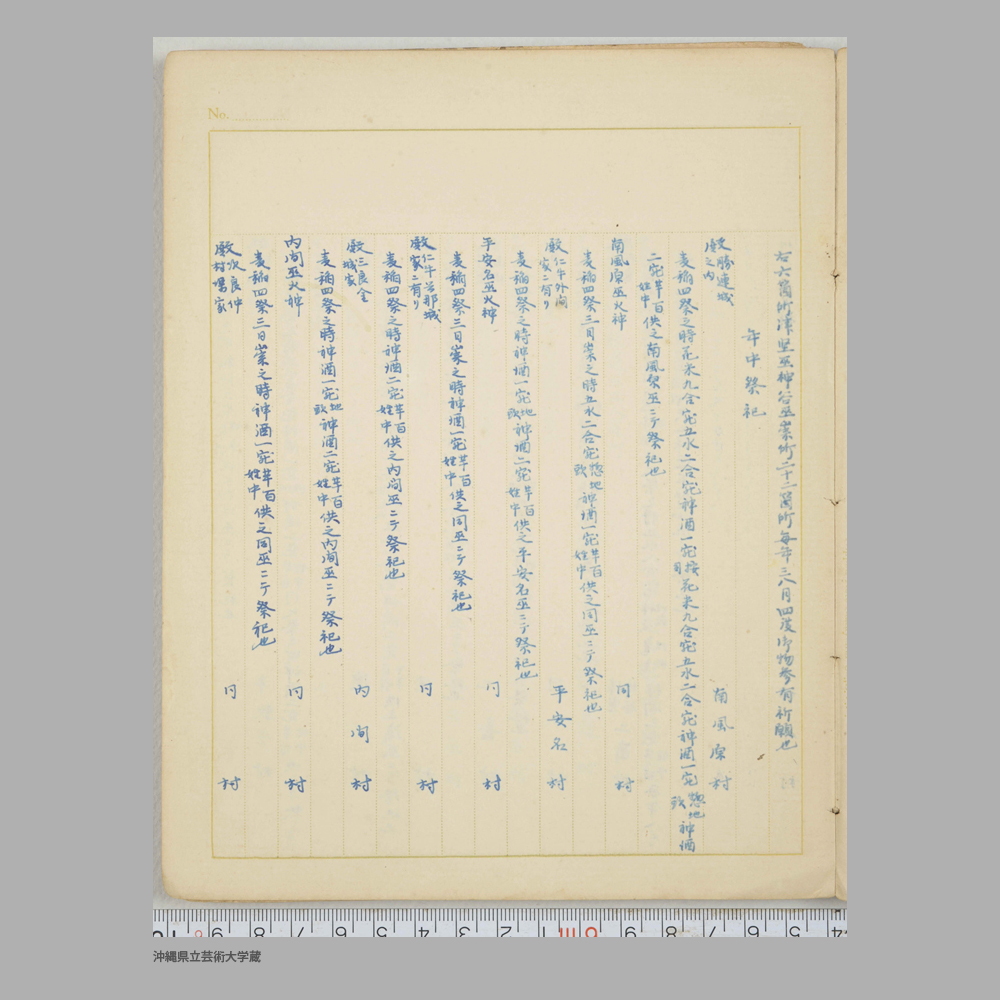 No.
右六箇所津堅巫神谷巫崇所二十二箇所毎年三八月四度御物参有祈願也
年中祭祀
殿 勝連城之内 南風原村
麦稲四祭之時花米九合宛五水二合宛神酒一宛按司花米九合宛五水二合宛神酒一宛惣地頭神酒
二宛百姓中供之南風原巫ニテ祭祀也
南風原巫火神 同村
麦稲四祭三日崇之時五水二合宛惣地頭神酒一宛百姓中供之同巫ニテ祭祀也
殿 仁牛外間家ニ有り 平安名村
麦稲四祭之時神酒一宛地頭神酒二宛百姓中供之平安名巫ニテ祭祀也
平安名巫火神 同村
麦稲四祭三日崇之時神酒一宛百姓中供之同巫ニテ祭祀也
殿 仁牛安那城家ニ有り 同村
麦稲四祭之時神酒二宛百姓中供之内間巫ニテ祭祀也
殿 三良金城家 内間村
麦稲四祭之時神酒一宛地頭神酒二宛百姓中供之内間巫ニテ祭祀也
内間巫火神 同村
麦稲四祭三日崇之時神酒一宛百姓中供之同巫ニテ祭祀也
殿 次良仲村渠家 同村
沖縄県立芸術大学蔵